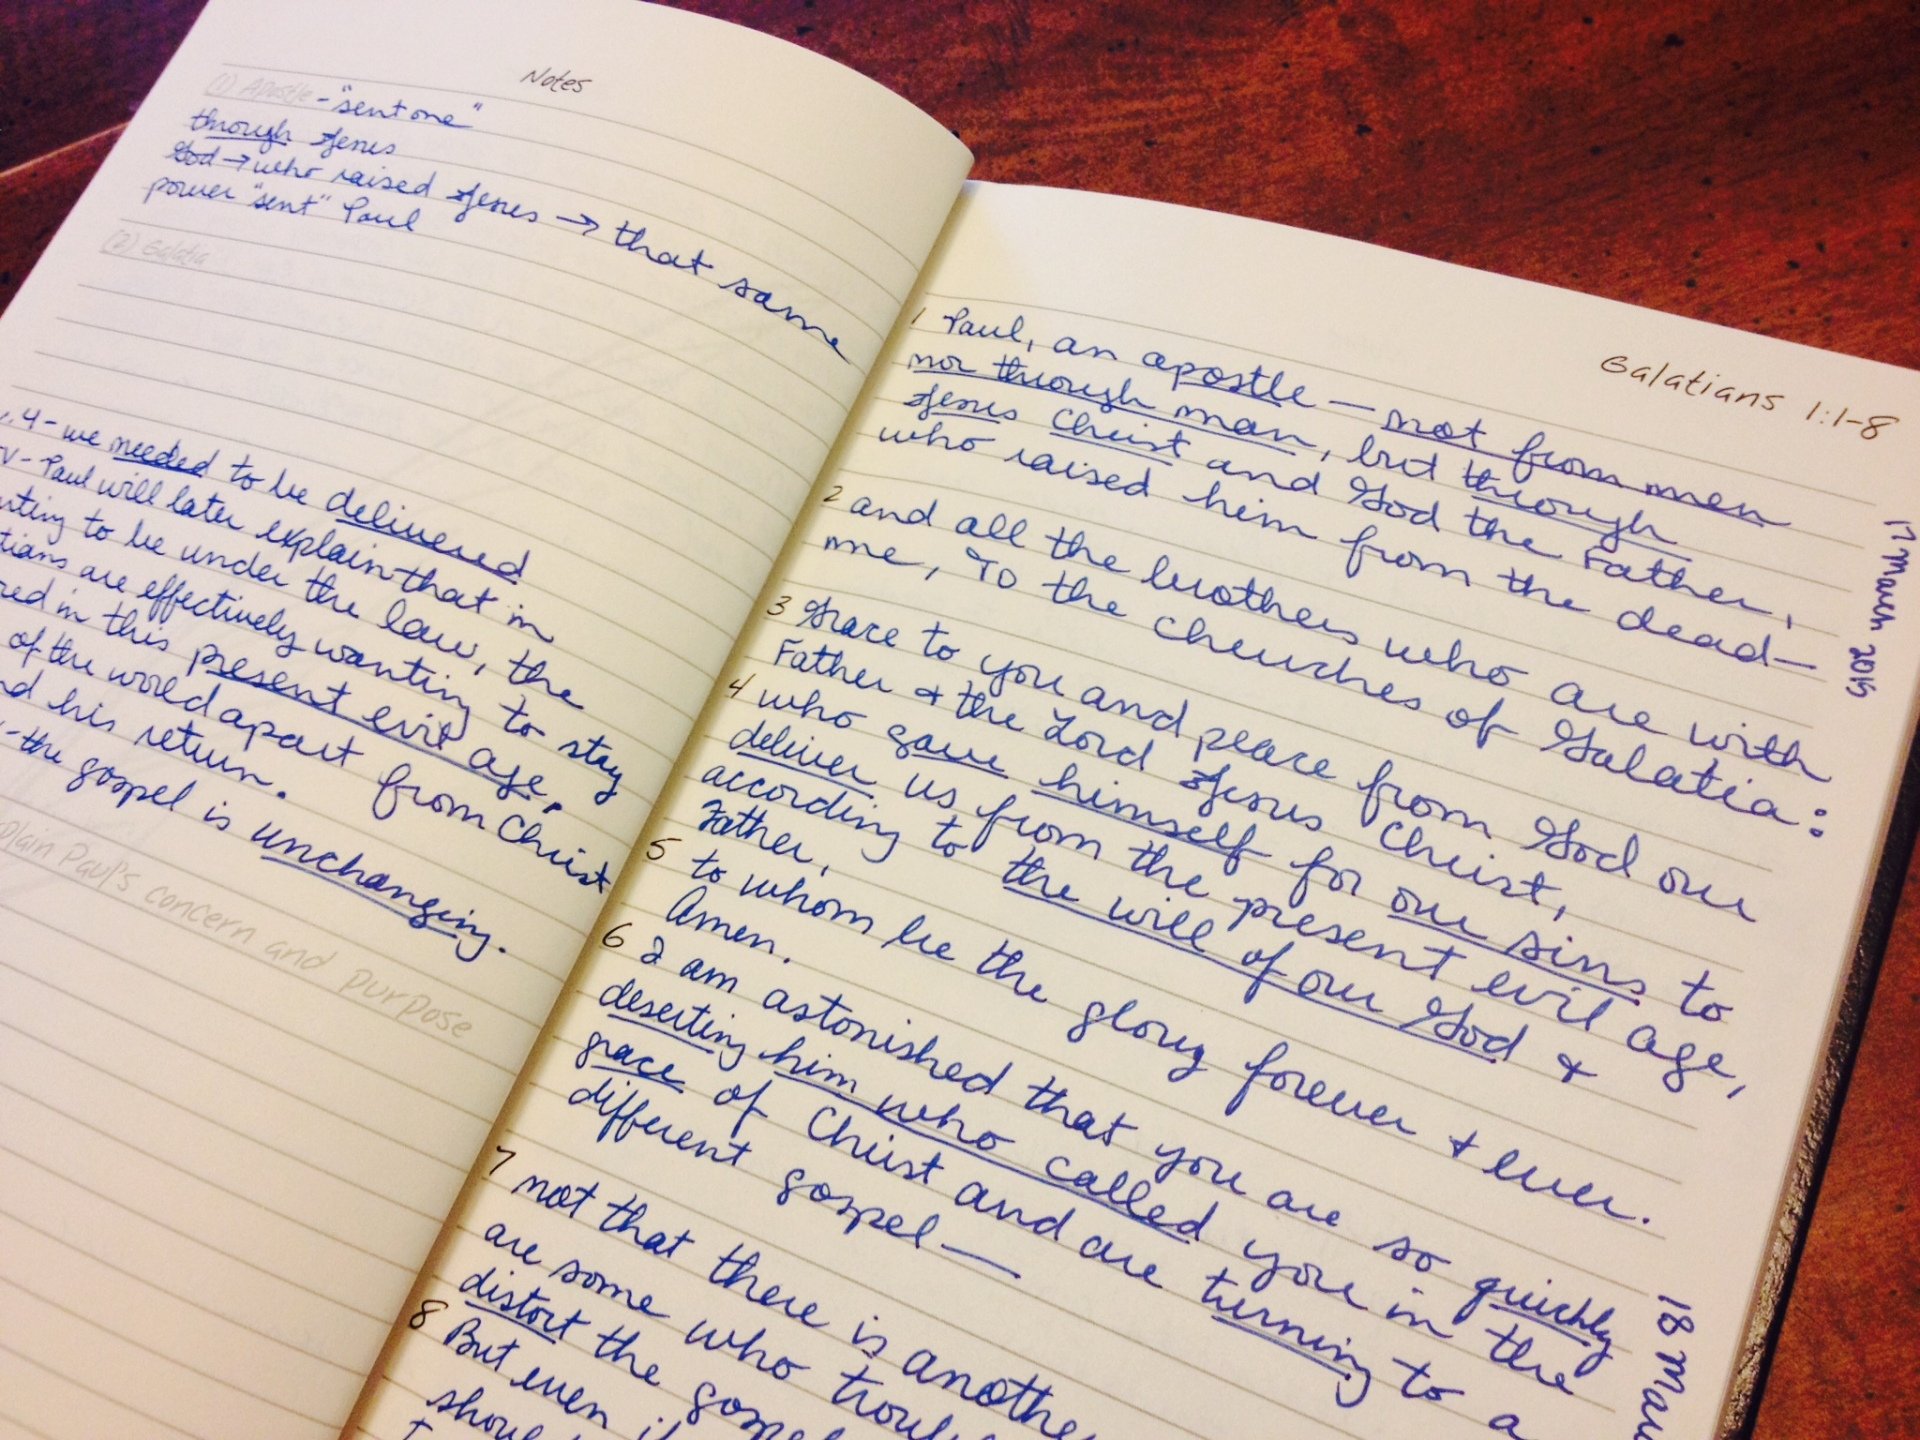 Notes
(1) Apostle - "sent one"
through Jesus
God → who raised Jesus → that same
power "sent" Paul
(2) Galatia
4 - we needed to be delivered
Paul will later explain that in
to be under the law, the
are effectively wanting to stay
in this present evil age,
of the world apart from Christ
his return.
- the gospel is unchanging.
Paul's concern and purpose
Galatians 1:1-8
1 Paul, an apostle — not from men
nor through man, but through
Jesus Christ and God the Father,
who raised him from the dead—
2 and all the brothers who are with
me, To the churches of Galatia:
3 Grace to you and peace from God our
Father & the Lord Jesus Christ,
4 who gave himself for our sins to
deliver us from the present evil age,
according to the will of our God &
Father,
5 to whom be the glory forever & ever.
Amen.
6 I am astonished that you are so quickly
deserting him who called you in the
grace of Christ and are turning to a
different gospel —
7 not that there is another
are some who
distort the gospel
8 But even
17 March 2015
18